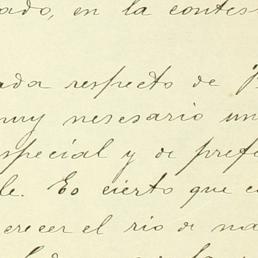 ado, en la contes
ada respecto de
muy nesesario un
special y de prefe
le. Es cierto que e
erecer el rio de na